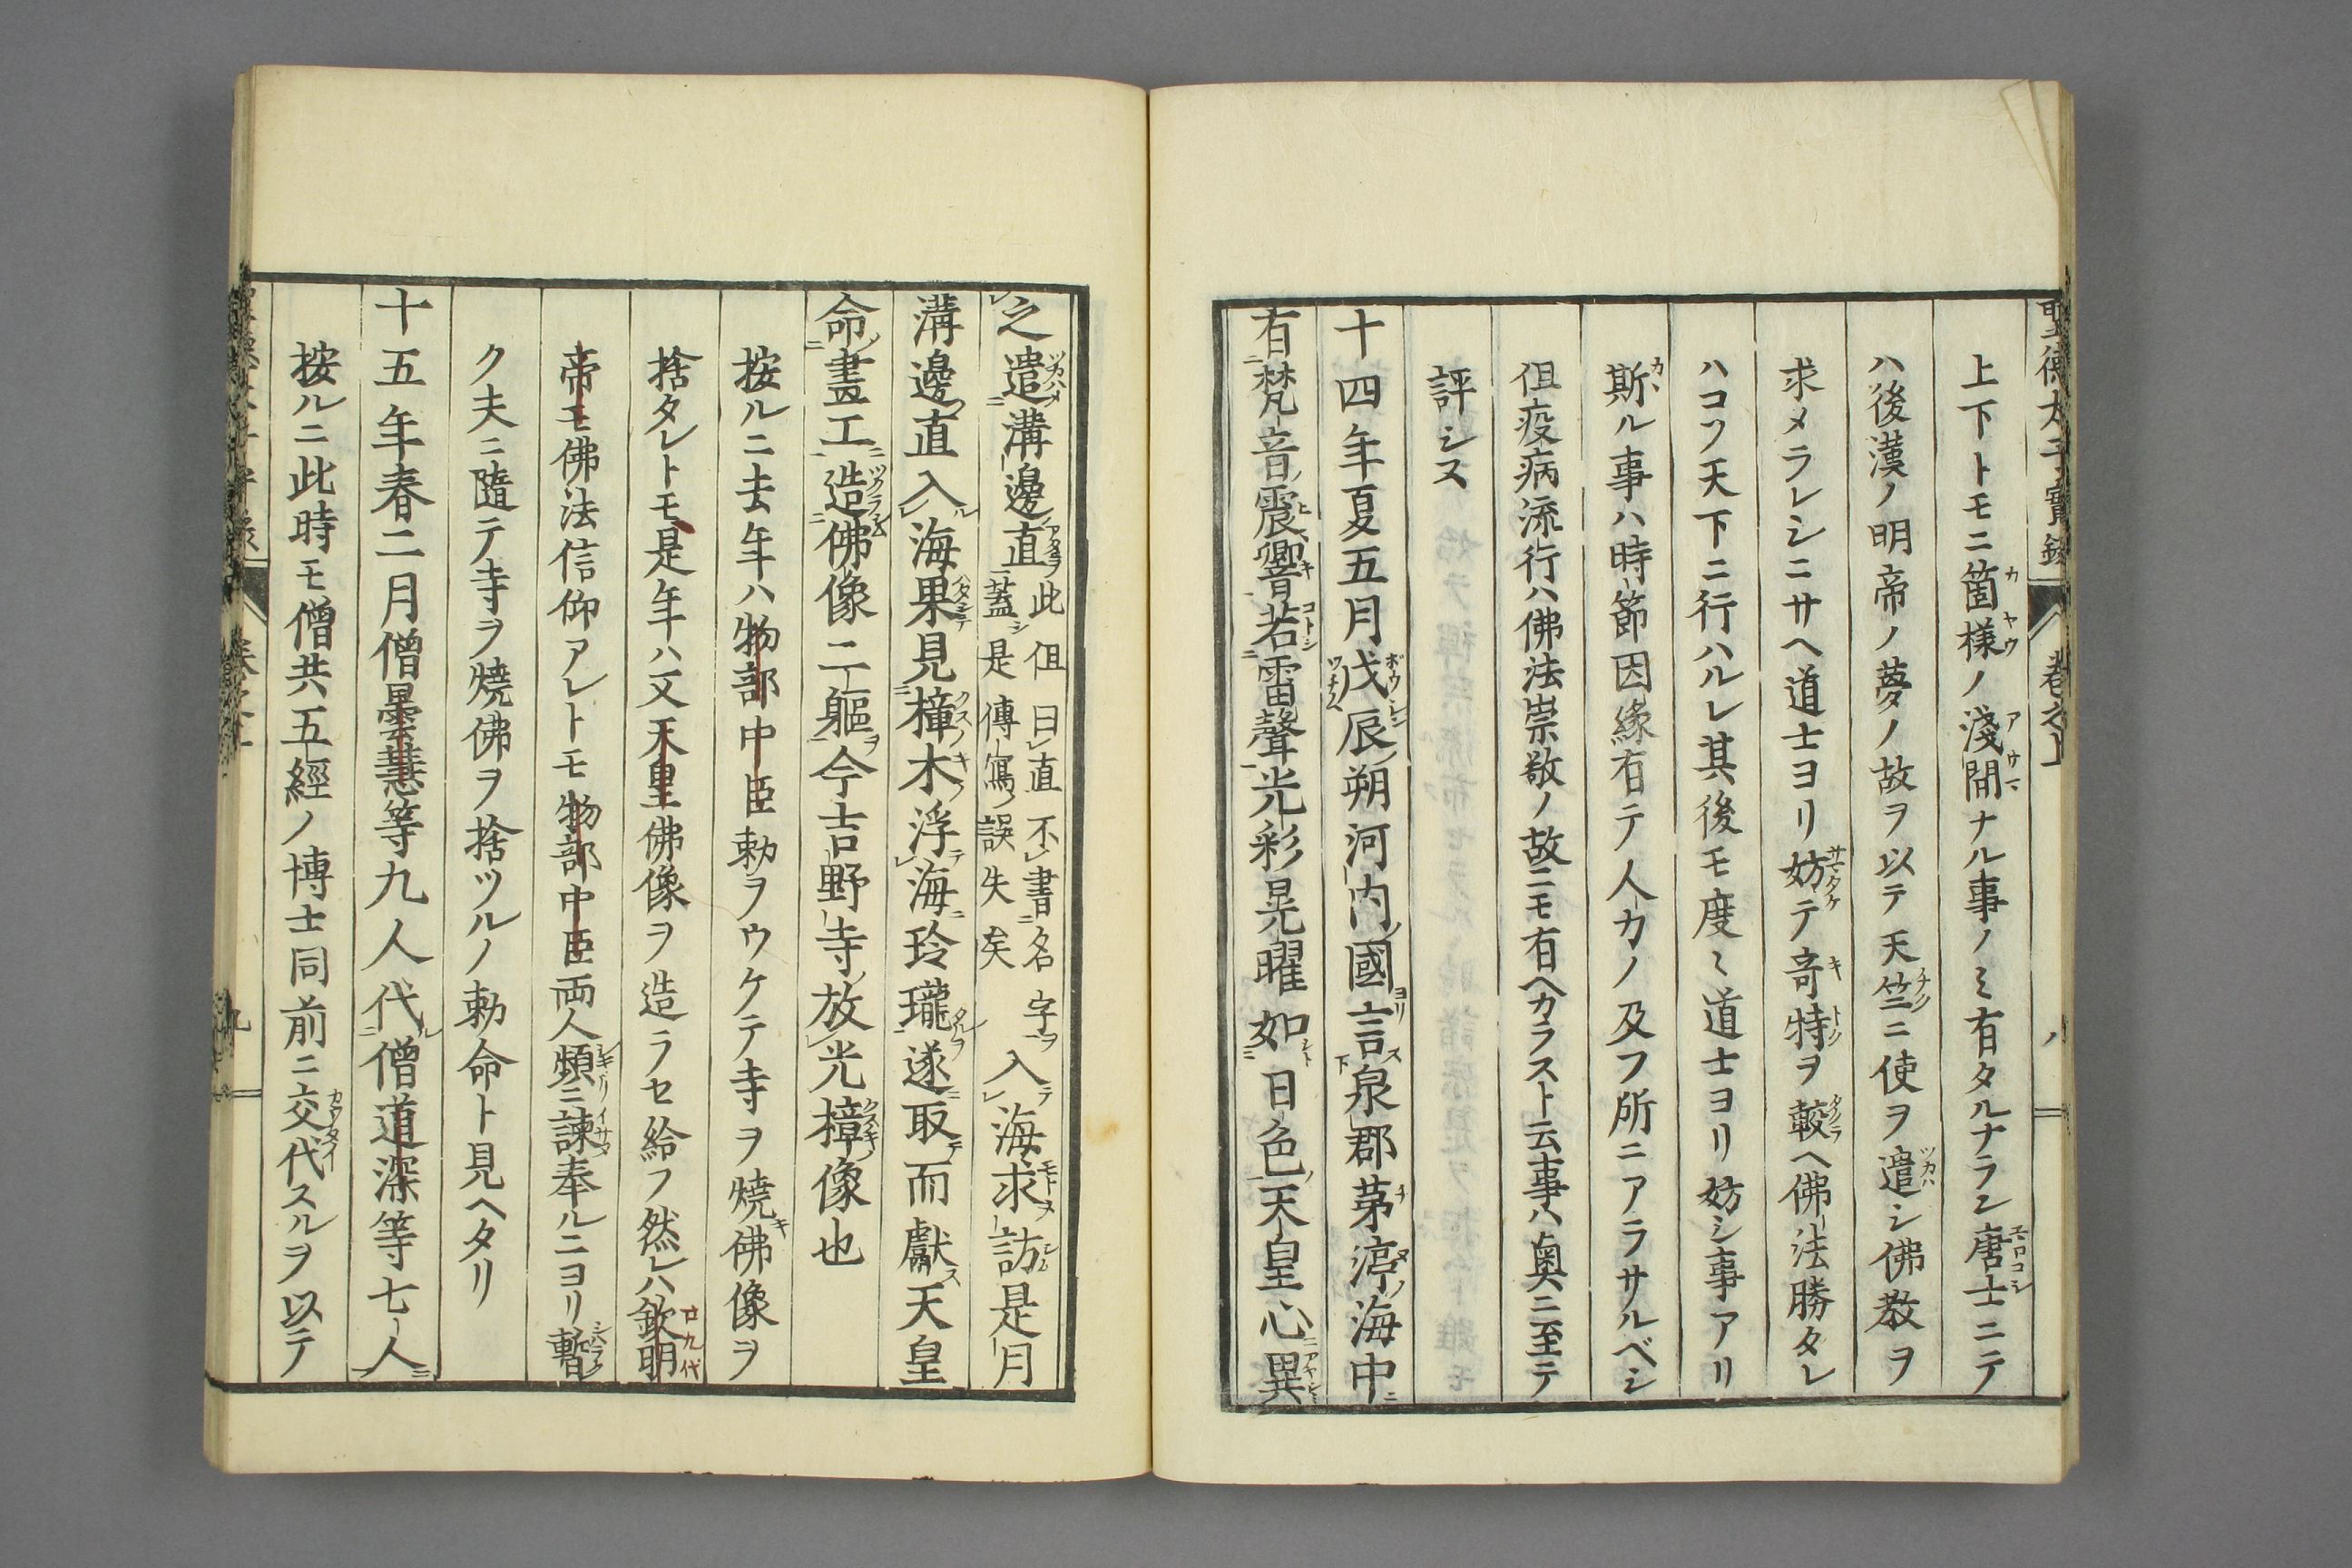 聖德太子實錄
卷之上
上下トモニ箇樣ノ淺間ナル事ノミ有タルナラン唐土ニテ
ハ後漢ノ明帝ノ夢ノ故ヲ以テ天竺ニ使ヲ遣シ佛教ヲ
求メラレシニサヘ道士ヨリ妨テ奇特ヲ較ヘ佛法勝タレ
ハコソ天下ニ行ハルレ其後モ度〻道士ヨリ妨シ事アリ
斯ル事ハ時節因緣有テ人力ノ及フ所ニアラサルベシ
但疫病流行ハ佛法崇敬ノ故ニモ有ヘカラスト云事ハ奥ニ至テ
評シヌ
十四年夏五月戊辰朔河内國言泉郡茅渟海中
有梵音震響若雷聲光彩晃曜如日色天皇心異
之遣溝邊直此但曰直不書名字蓋是傳寫誤失矣入海求訪是月
溝邊直入海果見樟木浮海玲瓏遂取而獻天皇
命畫工造佛像二軀今吉野寺放光樟像也
按ルニ去年ハ物部中臣勅ヲウケテ寺ヲ燒佛像ヲ
捨タレトモ是年ハ又天皇佛像ヲ造ラセ給フ然レハ欽明
帝モ佛法信仰アレトモ物部中臣両人頻ニ諫奉ルニヨリ暫
ク夫ニ隨テ寺ヲ燒佛ヲ捨ツルノ勅命ト見ヘタリ
十五年春二月僧曇慧等九人代僧道深等七人
按ルニ此時モ僧共五經ノ博士同前ニ交代スルヲ以テ